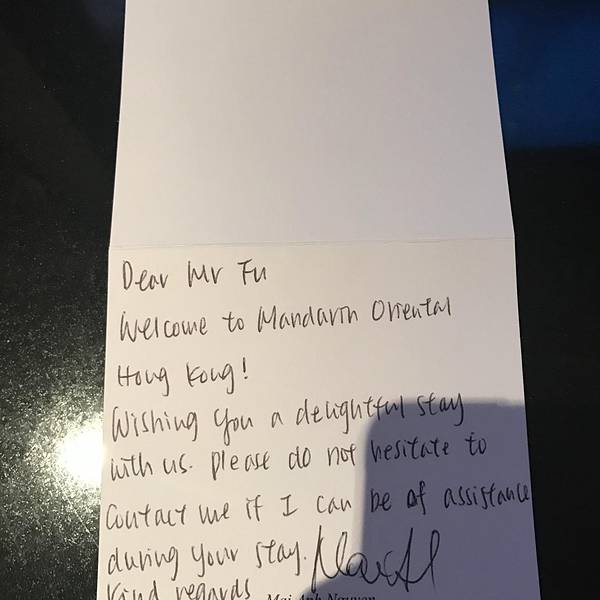 Dear Mr Fu
Welcome to Mandarin Oriental
Hong Kong!
Wishing you a delightful stay
with us. Please do not hesitate to
contact me if I can be of assistance
during your stay.
Kind regards
Mai Anh Nguyen